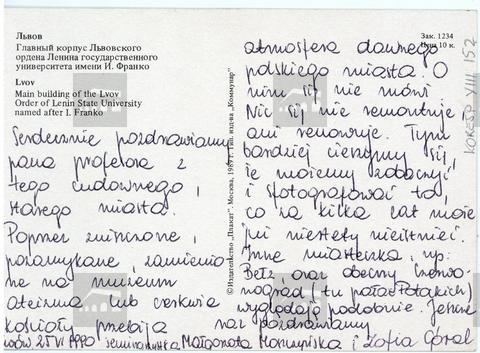 Львов
Главный корпус Львовского
ордена Ленина государственного
университета имени И. Франко
Lvov
Main building of the Lvov
Order of Lenin State University
named after I. Franko
Зак. 1234
Цена 10 к.
KORESP VIII 152
© Издательство „Плакат". Москва, 1989 г. Тип. изд-ва „Коммунар"
Serdecznie pozdrawiamy
pana profesora z
tego cudownego,
starego miasta.
Poprzez zniszczone,
pozamykane, zamienio-
ne na muzeum
ateizmu lub cerkwie
kościoły przebija
atmosfera dawnego
polskiego miasta. O
nim się nie mówi
Nic się nie remontuje
ani renowuje. Tym
bardziej cieszymy się,
że możemy zobaczyć
i sfotografować to,
co za kilka lat może
już niestety nie istnieć.
Inne miasteczka, np:
Bełz, oraz obecny Czerwo-
nograd (tu pałac Potockich)
wyglądają podobnie. Jeszcze
raz pozdrawiamy
Lwów 25 VI 1990 seminarzystka Małgorzata i Zofia Góral